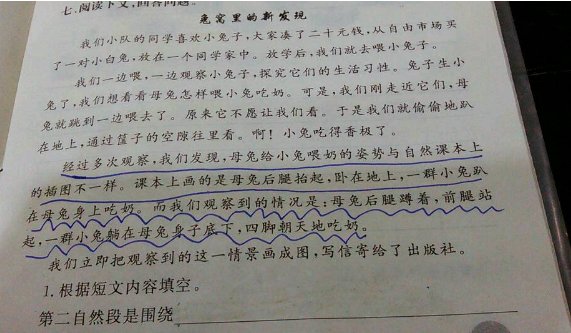 七.阅读下文,回答问题。
兔窝里的新发现
我们小队的同学喜欢小兔子,大家凑了二十元钱,从自由市场买
了一对小白兔,放在一个同学家中。放学后,我们就去喂小兔子。
我们一边喂,一边观察小兔子,探究它们的生活习性。兔子生小
兔了,我们想看看母兔怎样喂小兔吃奶。可是,我们刚走近它们,母
兔就跳到一边喂去了。原来它不愿让我们看。于是我们就偷偷地趴
在地上,通过筐子的空隙往里看。啊!小兔吃得香极了。
经过多次观察,我们发现,母兔给小兔喂奶的姿势与自然课本上
的插图不一样。课本上画的是母兔后腿抬起,卧在地上,一群小兔趴
在母兔身上吃奶。而我们观察到的情况是:母兔后腿蹲着,前腿站
起,一群小兔躺在母兔身子底下,四脚朝天地吃奶。
我们立即把观察到的这一情景画成图,写信寄给了出版社。
1.根据短文内容填空。
第二自然段是围绕